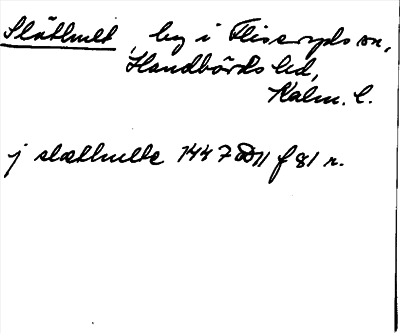 Släthult, by i Fliseryds sn,
Handbörds hd,
Kalm. l.
j slæthulte 1447 D11 f 81 r.